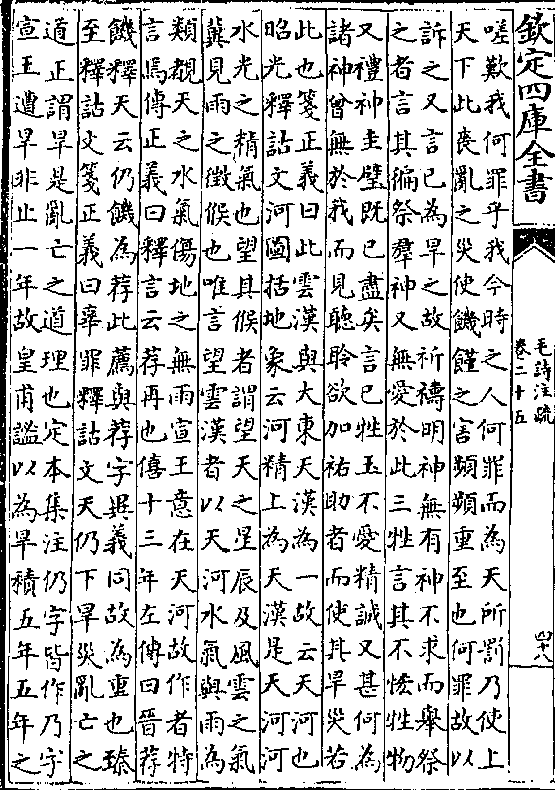 欽定四庫全書
毛詩注疏
卷二十五
四十八
嗟歎我何罪乎我今時之人何罪而為天所罰乃使上
天下此喪亂之災使饑饉之害頻頻重至也何罪故以
訴之又言已為旱之故祈禱明神無有神不求而舉祭
之者言其徧祭羣神又無愛於此三牲言其不恡牲物
又禮神圭璧既已盡矣言已牲玉不愛精誠又甚何為
諸神曾無於我而見聽聆欲加祐助者而使其旱災若
此也箋正義曰此雲漢與大東天漢為一故云天河也
昭光釋詁文河圖括地象云河精上為天漢是天河河
水光之精氣也望其候者謂望天之星辰及風雲之氣
冀見雨之徵候也唯言望雲漢者以天河水氣與雨為
類觀天之水氣傷地之無雨宣王意在天河故作者特
言焉傳正義曰釋言云荐再也僖十三年左傳曰晉荐
饑釋天云仍饑為荐此薦與荐字異義同故為重也臻
至釋詁文箋正義曰辜罪釋詁文天仍下旱災亂亡之
道正謂旱是亂亡之道理也定本集注仍字皆作乃字
宣王遭旱非止一年故皇甫謐以為旱積五年五年之